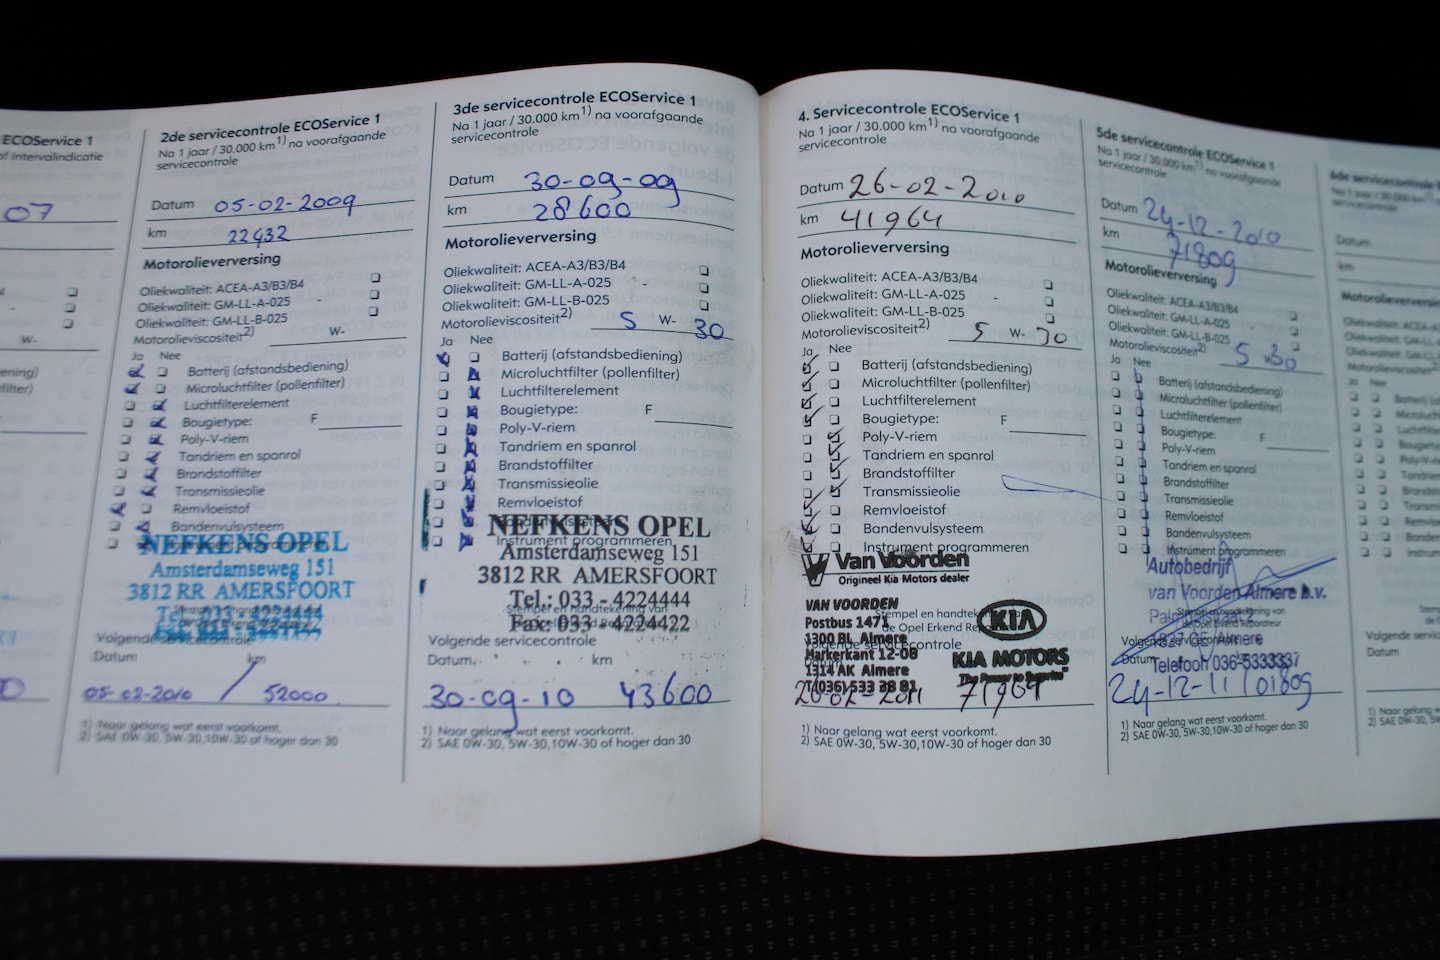 ECOService 1
of intervalindicatie
07
W-
2de servicecontrole ECOService 1
Na 1 jaar / 30.000 km1) na voorafgaande
servicecontrole
Datum 05-02-2009
km 22432
Motorolieverversing
Oliekwaliteit: ACEA-A3/B3/B4
Oliekwaliteit: GM-LL-A-025
Oliekwaliteit: GM-LL-B-025
Motorolieviscositeit2) W-
Ja Nee
Batterij (afstandsbediening)
Microluchtfilter (pollenfilter)
Luchtfilterelement
Bougietype: F
Poly-V-riem
Tandriem en spanrol
Brandstoffilter
Transmissieolie
Remvloeistof
Bandenvulsysteem
NEFKENS OPEL
Amsterdamseweg 151
3812 RR AMERSFOORT
Tel.: 033 - 4224444
Volgende servicecontrole
Datum km
05-02-2010 / 52000
1) Naar gelang wat eerst voorkomt.
2) SAE 0W-30, 5W-30,10W-30 of hoger dan 30
3de servicecontrole ECOService 1
Na 1 jaar / 30.000 km1) na voorafgaande
servicecontrole
Datum 30-09-09
km 28600
Motorolieverversing
Oliekwaliteit: ACEA-A3/B3/B4
Oliekwaliteit: GM-LL-A-025
Oliekwaliteit: GM-LL-B-025
Motorolieviscositeit2) 5 W- 30
Ja Nee
Batterij (afstandsbediening)
Microluchtfilter (pollenfilter)
Luchtfilterelement
Bougietype: F
Poly-V-riem
Tandriem en spanrol
Brandstoffilter
Transmissieolie
Remvloeistof
Instrument programmeren
NEFKENS OPEL
Amsterdamseweg 151
3812 RR AMERSFOORT
Tel.: 033 - 4224444
Fax: 033 - 4224422
Stempel en handtekening van
Volgende servicecontrole
Datum km
30-09-10 43600
1) Naar gelang wat eerst voorkomt.
2) SAE 0W-30, 5W-30,10W-30 of hoger dan 30
4. Servicecontrole ECOService 1
Na 1 jaar / 30.000 km1) na voorafgaande
servicecontrole
Datum 26-02-2010
km 41964
Motorolieverversing
Oliekwaliteit: ACEA-A3/B3/B4
Oliekwaliteit: GM-LL-A-025
Oliekwaliteit: GM-LL-B-025
Motorolieviscositeit2) 5 W- 30
Ja Nee
Batterij (afstandsbediening)
Microluchtfilter (pollenfilter)
Luchtfilterelement
Bougietype: F
Poly-V-riem
Tandriem en spanrol
Brandstoffilter
Transmissieolie
Remvloeistof
Bandenvulsysteem
Instrument programmeren
Van Voorden
Origineel Kia Motors dealer
VAN VOORDEN
Postbus 1471
1300 BL Almere
Markerkant 12-08
1314 AK Almere
T(036) 533 38 81
Stempel en handtekening
de Opel Erkend Reparateur
Volgende servicecontrole
KIA
KIA MOTORS
The Power to Surprise
26-02-2011 71964
1) Naar gelang wat eerst voorkomt.
2) SAE 0W-30, 5W-30,10W-30 of hoger dan 30
5de servicecontrole ECOService 1
Na 1 jaar / 30.000 km1) na voorafgaande
servicecontrole
Datum 24-12-2010
km 71809
Motorolieverversing
Oliekwaliteit: ACEA-A3/B3/B4
Oliekwaliteit: GM-LL-A-025
Oliekwaliteit: GM-LL-B-025
Motorolieviscositeit2) 5 W- 30
Ja Nee
Batterij (afstandsbediening)
Microluchtfilter (pollenfilter)
Luchtfilterelement
Bougietype: F
Poly-V-riem
Tandriem en spanrol
Brandstoffilter
Transmissieolie
Remvloeistof
Bandenvulsysteem
Instrument programmeren
Autobedrijf
van Voorden Almere b.v.
Almere
Telefoon 036-5333337
Stempel en handtekening van
de Opel Erkend Reparateur
Volgende servicecontrole
Datum
24-12-11 101809
1) Naar gelang wat eerst voorkomt.
2) SAE 0W-30, 5W-30,10W-30 of hoger dan 30
6de servicecontrole
Datum
km
Motorolieverversing
Ja Nee
Volgende
Datum